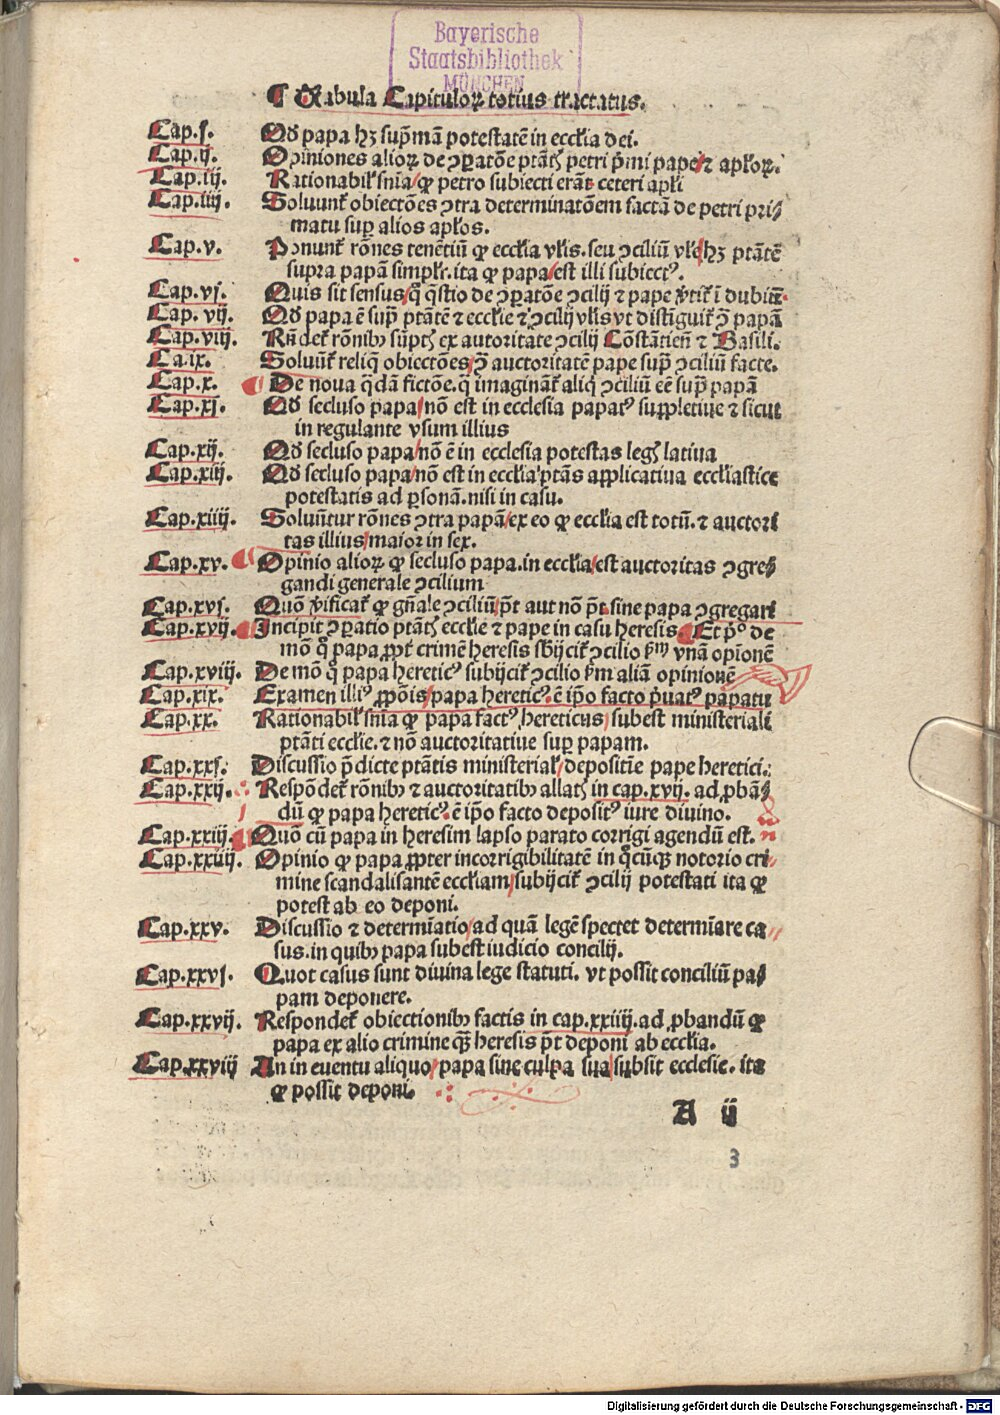 Bayerische
Staatsbibliothek
MÜNCHEN
¶ Tabula Capituloꝝ totius tractatus.
Cap.j. Qď papa hꝫ sup̄mā potestatē in eccl'ia dei.
Cap.ij. Opiniones alioꝝ de ꝯꝑatōe ptātꝭ petri p̄mi pape/⁊ apl'oꝝ.
Cap.iij. Rationabil' sn̄ia/ꝙ petro subiecti erāt ceteri apl'i
Cap.iiij. Soluunt᷑ obiectōes ↄtra determinatōem factā de petri pri⸗
matu suꝑ alios apl'os.
Cap.v. Ponunt᷑ rōnes tenētiū ꝙ eccl'ia vl'is. seu ↄciliū vl'e/hꝫ ptātē
supra papā simpl'r. ita ꝙ papa/est illi subiectꝰ.
Cap.vj. Quis sit sensus/q̄ q̄stio de ꝯꝑatōe ↄcilij ⁊ pape v̓tit᷑ ī dubiū.
Cap.vij. Qď papa ē sup̄ ptātē ⁊ eccl'ie ⁊ ↄcilij vl'is vt distīguit᷑ ↄ̄ papā
Cap.viij. Rn̄det᷑ rōnibꝰ sūptꝭ ex autoritate ↄcilij Cōstātien̄ ⁊ Basili.
Ca.ix. Soluūt᷑ reliq̄ obiectōes/ↄ̄ auctoritatē pape sup̄ ↄciliū facte.
Cap.x. De noua q̄dā fictōe. q̄ imagināt᷑ aliq̄ ↄciliū eē sup̄ papā
Cap.xj. Qď secluso papa/nō est in ecclesia papatꝰ suppletiue ⁊ sicut
in regulante vsum illius
Cap.xij. Qď secluso papa/nō ē in ecclesia potestas legꝭ latiua
Cap.xiij. Qď secluso papa/nō est in eccl'ia ptās applicatiua eccl'iastice
potestatis ad ꝑsonā. nisi in casu.
Cap.xiiij. Soluūtur rōnes ↄtra papā/ex eo ꝙ eccl'ia est totū. ⁊ auctori
tas illius/maior in sex.
Cap.xv. Opinio alioꝝ ꝙ secluso papa. in eccl'ia/est auctoritas ↄgre⸗
gandi generale ↄcilium
Cap.xvj. Quō v̓ificat᷑ ꝙ gn̄ale ↄciliū/pt̄ aut nō pt̄ sine papa ↄgregari
Cap.xvij. Incipit ꝯꝑatio ptātꝭ eccl'ie ⁊ pape in casu heresis. Et pº de
mō q̄ papa ꝓpt᷑ crimē heresis sb̄ijcit᷑ ↄcilio ẜm vnā opionē
Cap.xviij. De mō q̄ papa hereticꝰ subijcit᷑ ↄcilio ẜm aliā opinionē
Cap.xix. Examen illiꝰ ꝓpōis/papa hereticꝰ ē ip̄o facto p̄uatꝰ papatu
Cap.xx. Rationabil' sn̄ia ꝙ papa factꝰ hereticus/subest ministeriali
ptāti eccl'ie. ⁊ nō auctoritatiue suꝑ papam.
Cap.xxj. Discussio p̄dicte ptātis ministerial'/depositiōe pape heretici.
Cap.xxij. Respōdet᷑ rōnibꝰ ⁊ auctoritatibꝰ allatꝭ in cap.xvij. ad ꝓbā⸗
dū ꝙ papa hereticꝰ ē ip̄o facto depositꝰ iure diuino.
Cap.xxiij. Quō cū papa in heresim lapso parato corrigi agendū est.
Cap.xxiiij. Opinio ꝙ papa ꝓpter incorrigibilitatē in q̊cūqꝫ notorio cri⸗
mine scandalisantē eccl'iam/subijcit᷑ ↄcilij potestati ita ꝙ
potest ab eo deponi.
Cap.xxv. Discussio ⁊ determīatio/ad quā legē spectet determīare ca⸗
sus. in quibꝰ papa subest iudicio concilij.
Cap.xxvj. Quot casus sunt diuina lege statuti. vt possit conciliū pa⸗
pam deponere.
Cap.xxvij. Respondet᷑ obiectionibꝰ factis in cap.xxiiij. ad ꝓbandū ꝙ
papa ex alio crimine qꝫ heresis pt̄ deponi ab eccl'ia.
Cap.xxviij An in euentu aliquo/papa sine culpa sua/subsit ecclesie. ita
ꝙ possit deponi.
A ij
3
Digitalisierung gefördert durch die Deutsche Forschungsgemeinschaft - DFG